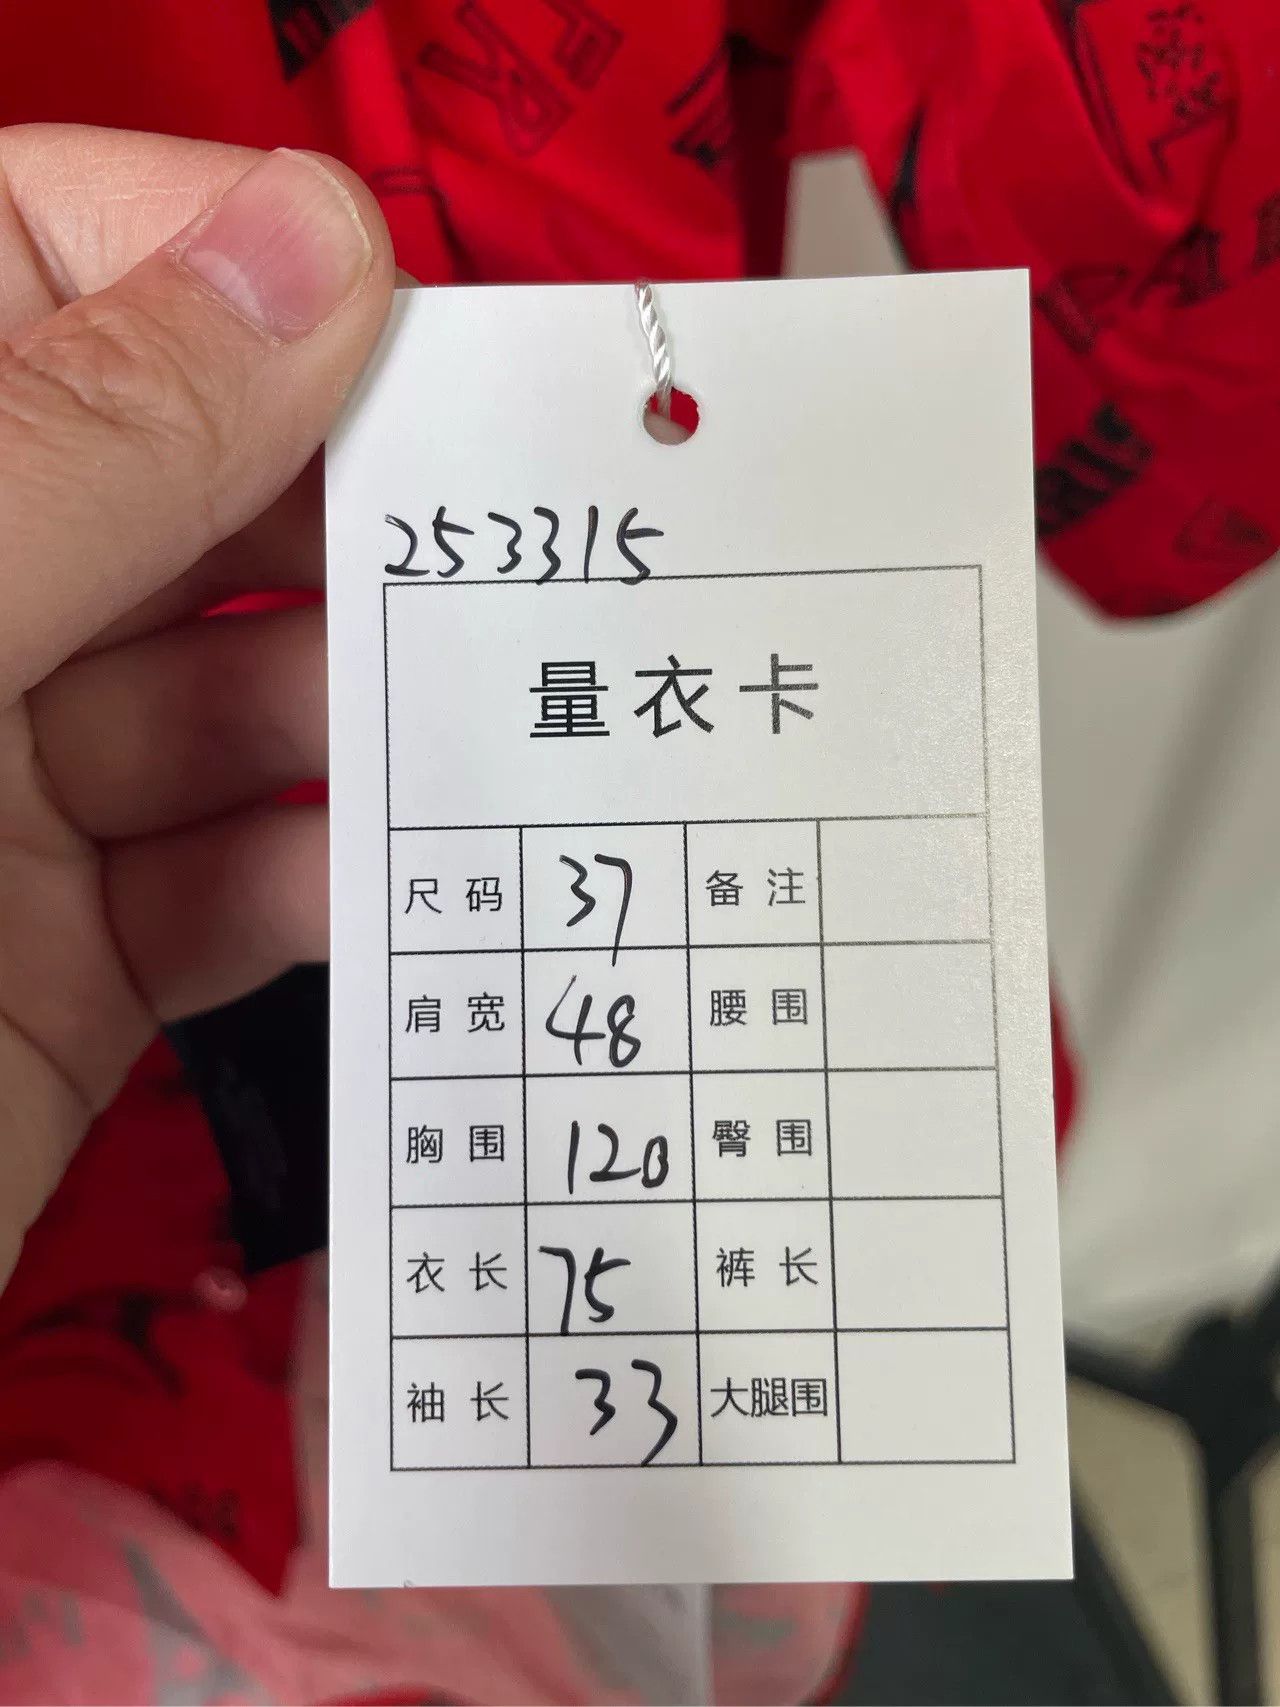 253315
量衣卡
尺码 37 备注
肩宽 48 腰围
胸围 120 臀围
衣长 75 裤长
袖长 33 大腿围